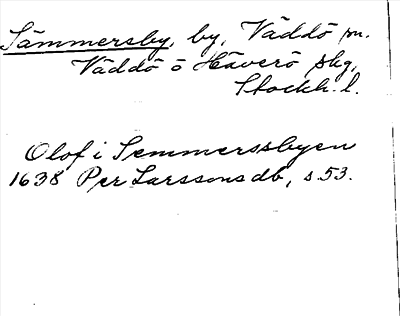 Sämmersby, by, Väddö sn.
Väddö o Häverö skg,
Stockh. l.
Olof i Semmerssbyen
1638 Per Larssons db, s 53.